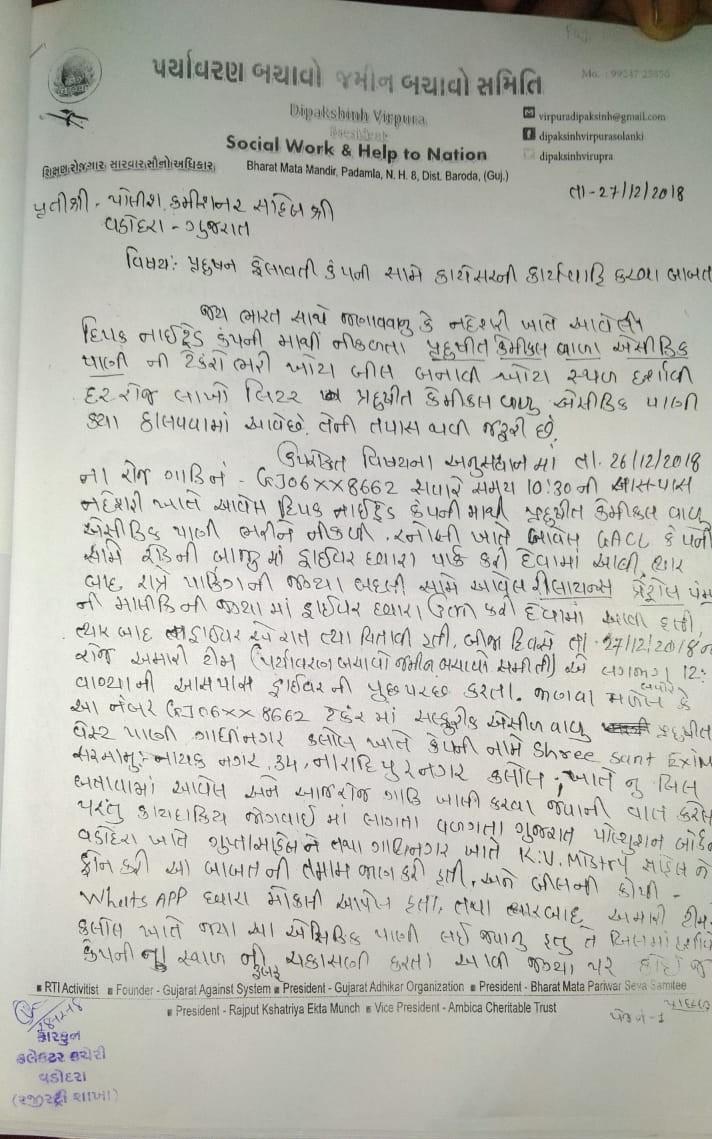 પર્યાવરણ બચાવો જમીન બચાવો સમિતિ
Dipakshinh Virpura
President
Social Work & Help to Nation
Bharat Mata Mandir, Padamla, N. H. 8, Dist. Baroda, (Guj.)
virpuradipaksinh@gmail.com
dipaksinhvirpurasolanki
dipaksinhvirupra
શિક્ષણ,રોજગાર,સારવાર,સૌનોઅધિકાર
તા-27/12/2018
પ્રતીશ્રી - પોલીશ કમીશનર સાહેબ શ્રી
વડોદરા - ગુજરાત
વિષય: પ્રદુષન ફેલાવતી કંપની સામે કાયેસરની કાર્યવાહિ કરવા બાબત
જય ભારત સાથે જણાવવાનુ કે નદેશરી ખાતે આવેલી
દિપક નાઈટ્રેડ કંપની માથી નીકળતા પ્રદુષીત કેમીકલ વાળા એસીડિક
પાણી ની ટેકરો ભરી ખોટા બીલ બનાવી ખોટા સ્થળ દર્શાવી
દરરોજ લાખો લિટર પ્રદુષીત કેમીકલ વાળુ એસીડિક પાણી
ક્યા ઠાલવવામાં આવેછે. તેની તપાસ થવી જરૂરી છે.
ઉપરોક્ત વિષયના અનુસંધાન માં તા. 26/12/2018
ના રોજ ગાડિ નં - GJ06XX8662 સવારે સમય 10:30 ની આસ-પાસ
નદેશરી ખાતે આવેલ દિપક નાઈટ્રેડ કંપની માથી પ્રદુષીત કેમીકલ વાળુ
એસીડિક પાણી ભરીને નીકળી. રનોલી ખાતે આવેલ GACL કંપની
સામે રોડની બાજુ માં ડ્રાઈવર ધ્વારા પાર્ક કરી દેવામાં આવી, ત્યાર
બાદ રાત્રે પાર્કિંગની જગ્યા બદલી સામે આવેલ રીલાયન્સ પેટ્રોલ પંપ
ની માલીકિ ની જગ્યા માં ડ્રાઈવર ધ્વારા ઉભી કરી દેવામાં આવી હતી
ત્યાર બાદ ડ્રાઈવર રાત ત્યા વિતાવી હતી, બીજા દિવસે તા. 27/12/2018 ના
રોજ અમારી ટીમ (પર્યાવરણ બચાવો જમીન બચાવો સમીતી) એ લગભગ 12:
વાગ્યાની આસપાસ ડ્રાઈવરની પુછપરછ કરતા. જાણવા મળેલ કે
આ નંબર GJ06XX8662 ટેંકર માં સલ્ફુરીક એસીડ વાળુ પ્રદુષીત
વેસ્ટ પાણી ગાંધીનગર કલોલ ખાતે કંપની નામે Shree Sant Exim
સરનામુ: નાયક નગર, 34, નારદિપુરનગર કલોલ, ખાતે નુ બિલ
બતાવામાં આવેલ અને આજરોજ ગાડિ ખાલી કરવા જવાની વાત કરેલ
પરંતુ કાયદાકિય જોગવાઈ માં લાગતા વળગતા ગુજરાત પોલ્યુશન બોર્ડ
વડોદરા ખાતે ગુપ્તા સાહેબ ને તથા ગાંધીનગર ખાતે K.V. Mistry સાહેબ ને
ફોન કરી આ બાબત ની તમામ જાણ કરી હતી, અને બીલની કોપી -
WhatsAPP ધ્વારા મોકલી આપેલ હતા, તથા ત્યારબાદ અમારી ટીમ
કલોલ ખાતે જ્યા આ એસિડિક પાણી લઈ જવાનુ હતુ તે બિલમાં દર્શાવેલ
કંપની નુ સ્થળ ની ચકાસણી કરતા આવી જગ્યા પર કોઈ જ
RTI Activitist Founder - Gujarat Against System President - Gujarat Adhikar Organization President - Bharat Mata Pariwar Seva Samitee
President - Rajput Kshatriya Ekta Munch Vice President - Ambica Cheritable Trust
પેજ નં - 1
કારકુન
કલેક્ટર કચેરી
વડોદરા
(રજીસ્ટ્રી શાખા)